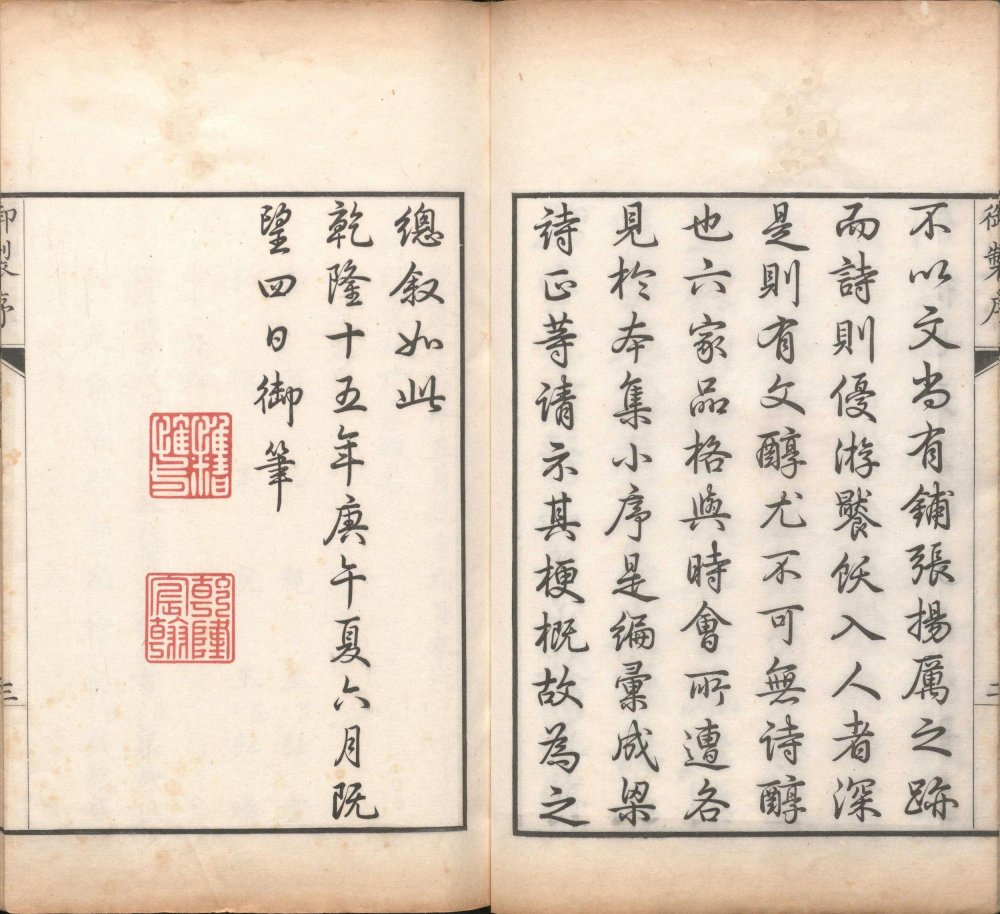 御製序
三
不以文尚有鋪張揚厲之跡
而詩則優游饜飫入人者深
是則有文醇尤不可無詩醇
也六家品格與時會所遭各
見於本集小序是編彙成梁
詩正等請示其梗概故為之
總叙如此
乾隆十五年庚午夏六月既
望四日御筆
惟精惟一
乾隆宸翰
御製序
三